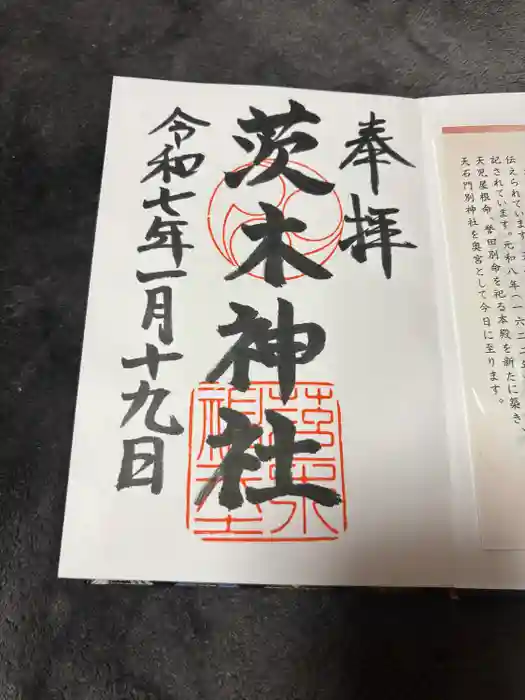 奉拝
茨木神社
令和七年一月十九日
伝えられています。
記されています。元和八年(一六二二年
天児屋根命、誉田別命を祀る本殿を新たに築き、
天石門別神社を奥宮として今日に至ります。